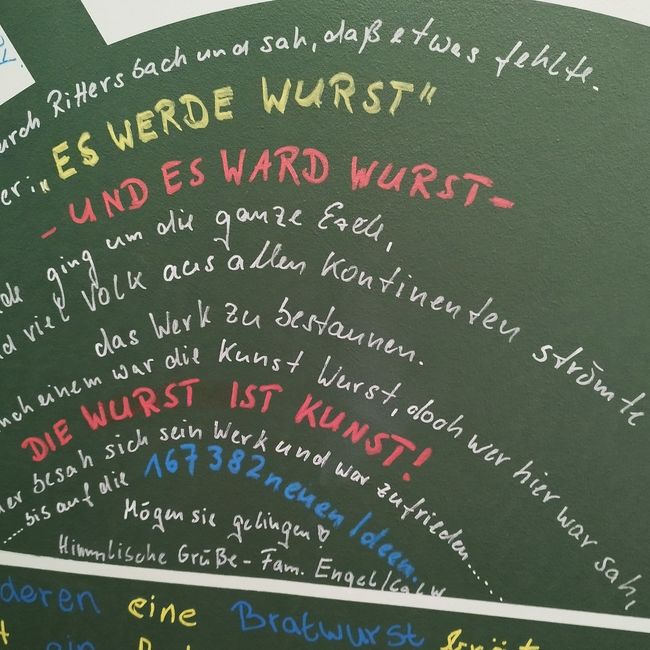 durch Rittersbach und sah, daß etwas fehlte.
er: „ES WERDE WURST"
- UND ES WARD WURST -
ging um die ganze Erde,
viel Volk aus allen Kontinenten strömte
das Werk zu bestaunen.
einem war die Kunst Wurst, doch wer hier war sah,
DIE WURST IST KUNST!
er besah sich sein Werk und war zufrieden......
.....bis auf die 167382 neuen Ideen.
Mögen sie gelingen
Himmlische Grüße - Fam. Engel/Calw
deren eine Bratwurst
ein